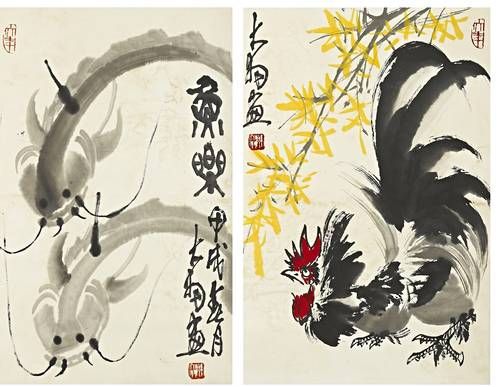 魚樂
甲戌春月
大羽畫
大羽畫